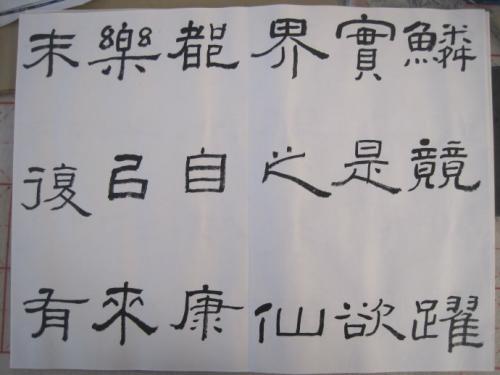 鱗競躍
實是欲
界之仙
都自康
樂㠯來
未復有